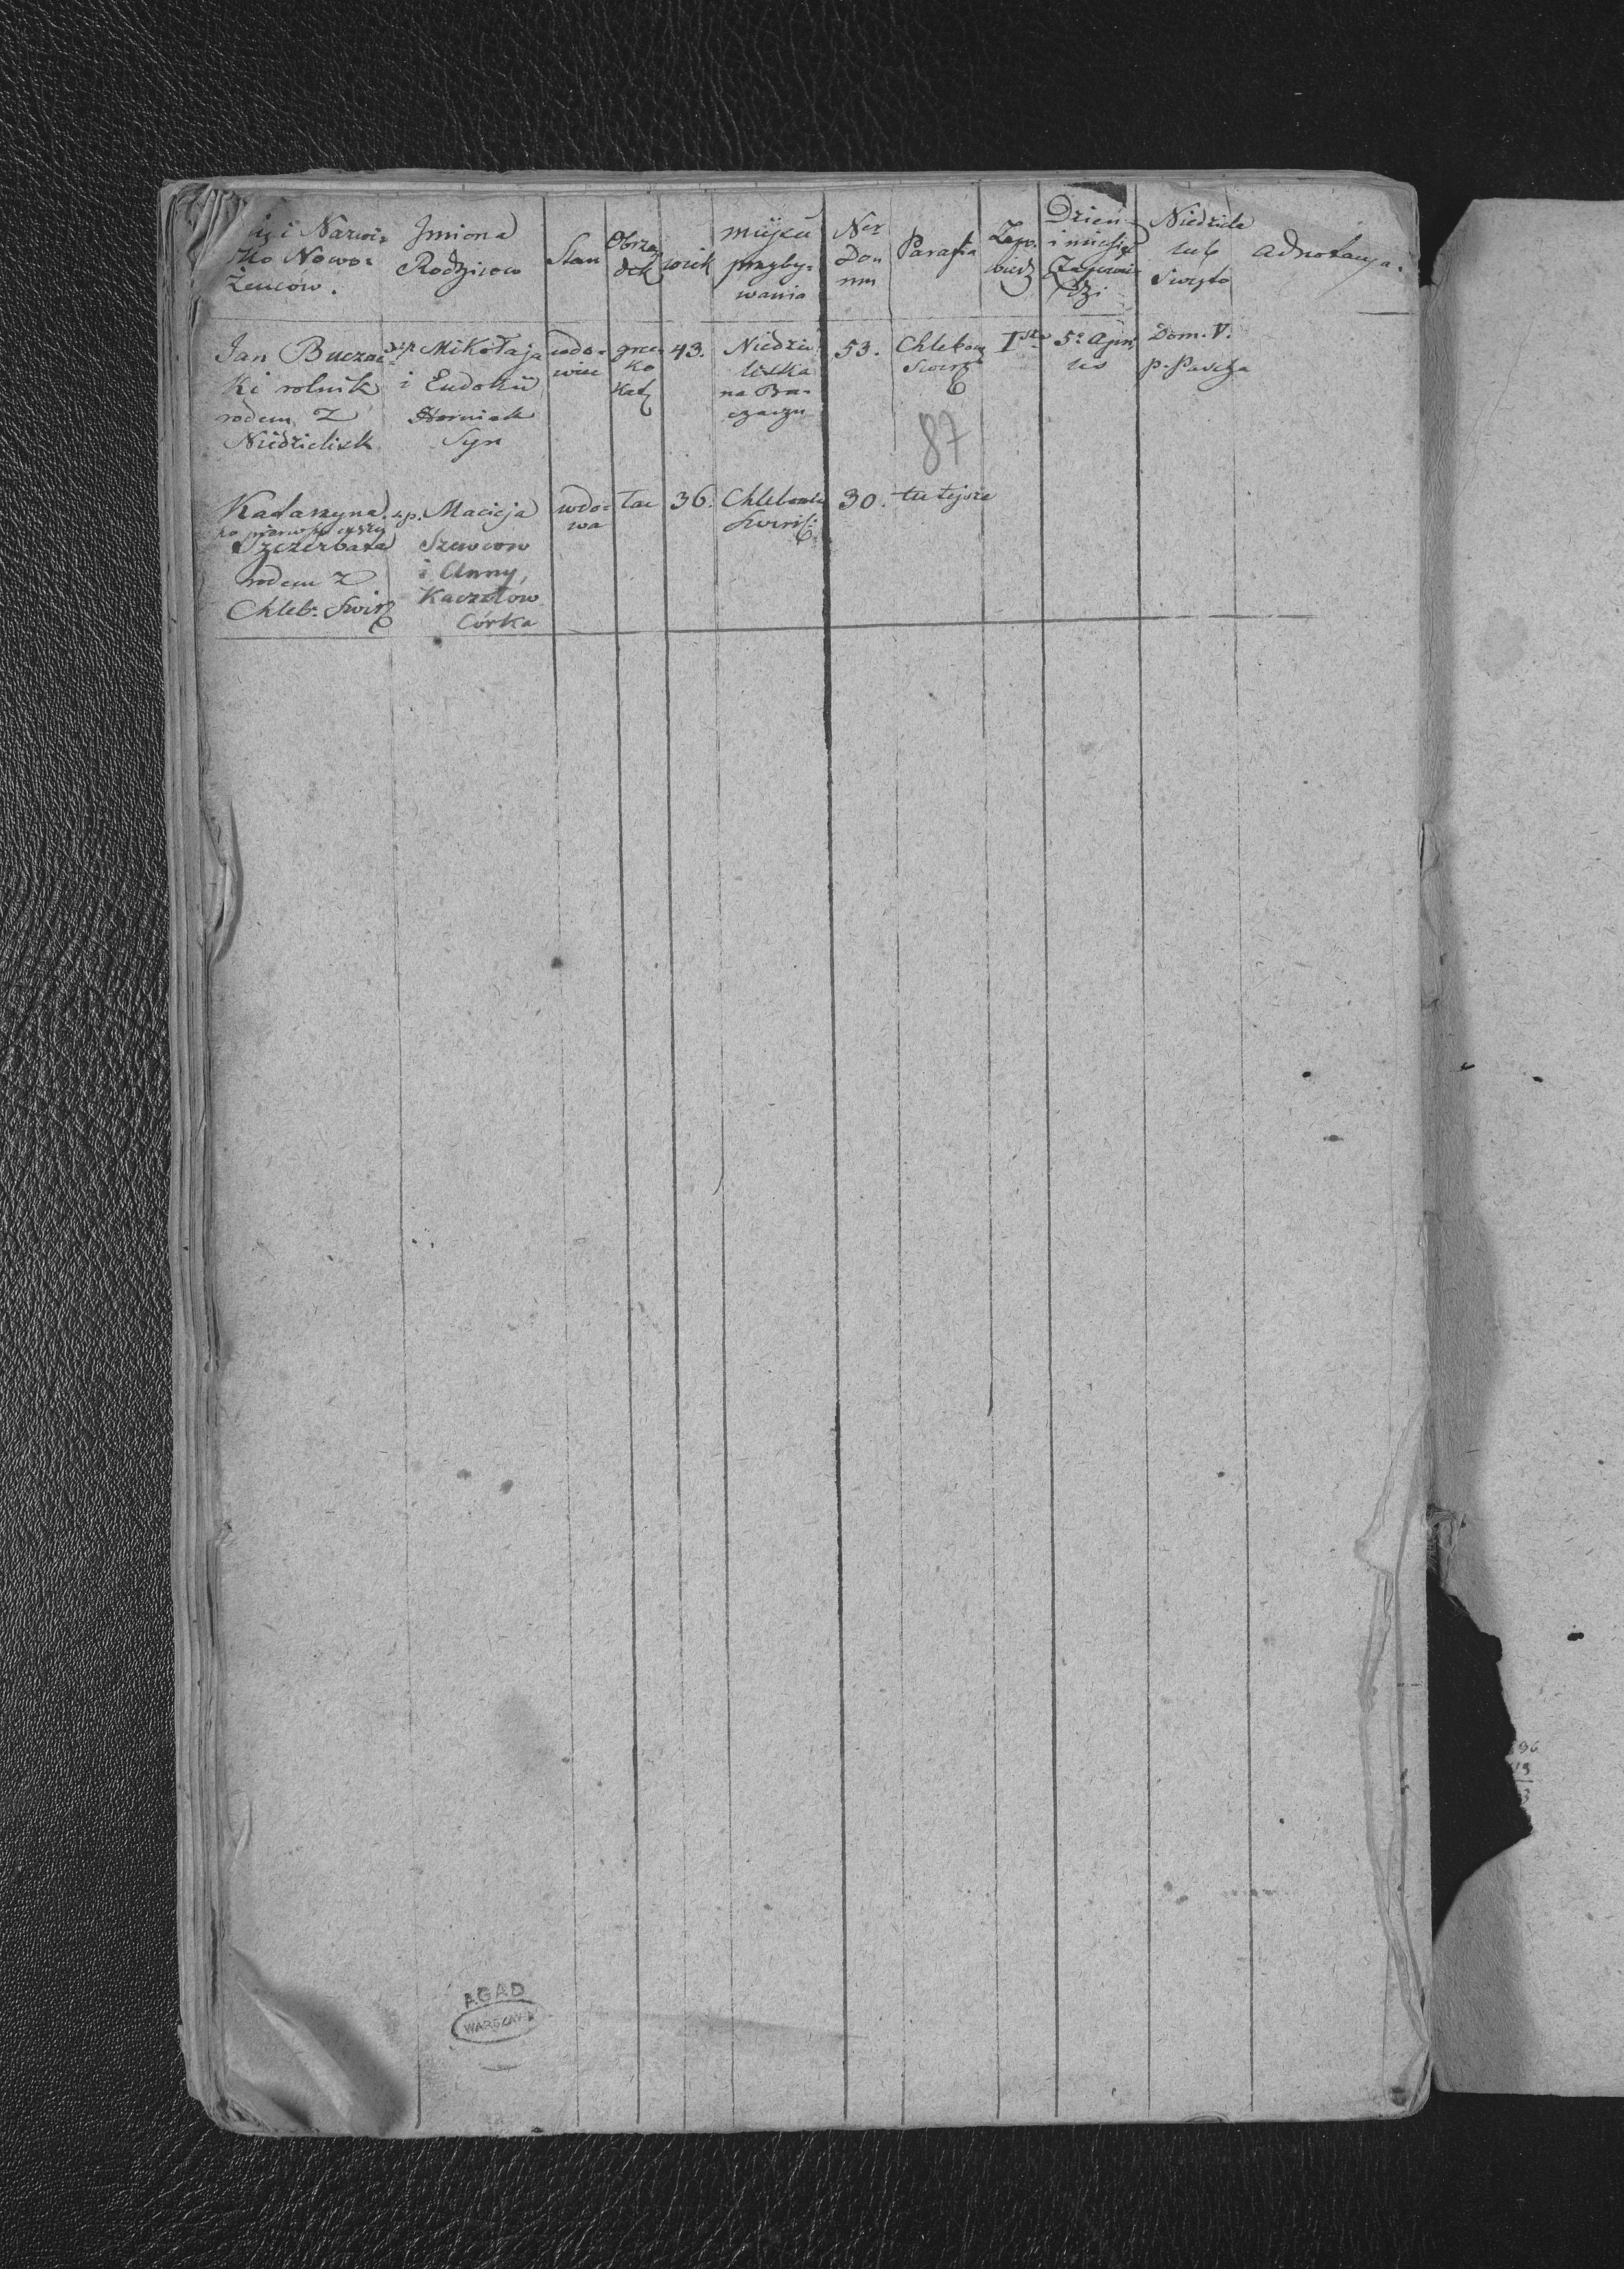 i Nazwi=
sko Nowo=
żeńców.
Imiona
Rodziców
Stan
Obrzą
dek
wiek
miejscu
przyby=
wania
Ner
Do=
mu
Parafia
Zapo=
wiedz
Dzień
i miesiąc
Zapowie=
dzi
Niedziela
lub
Swięto
Adnotacya.
Jan Buczac=
ki rolnik
rodem z
Niedzielisk
s.p. Mikołaja
i Eudokii
Syn
wdo=
wiec
grec=
ko
Kat
43.
Niedzie
liska
na Bu=
czaczu
53.
Chlebow
Swirz
Ist
5. April
Dom. V.
p. Pascha
87
Katarzyna
Szczerbata
rodem z
Chleb. Swirz
s.p. Macieja
Szewców
i Anny,
Córka
wdo=
wa
Łac
36.
Chlebow
Swirs
30.
tutejsze
AGAD
WARSZAWA
96